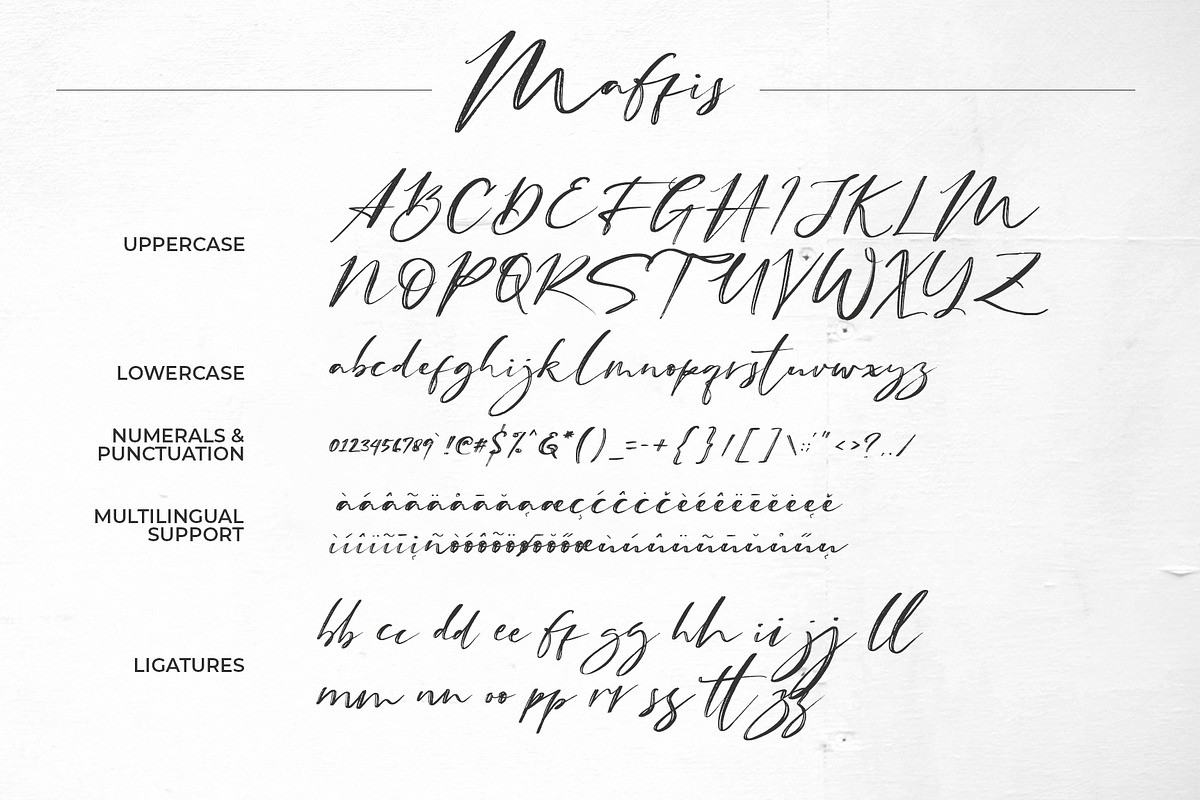 Maffis
UPPERCASE
ABCDEFGHIJKLM
NOPQRSTUVWXYZ
LOWERCASE
abcdefghijklmnopqrstuvwxyz
NUMERALS &
PUNCTUATION
0123456789` !@#$%^&*()_=-+{}/[]\:;'"<>?,./
MULTILINGUAL
SUPPORT
àáâãäåāăąæçćĉċčèéêëēĕėęě
ìíîïĩīįñòóôõöøōŏőœùúûüũūŭůűų
LIGATURES
bb cc dd ee ff gg hh ii jj ll
mm nn oo pp rr ss tt zz